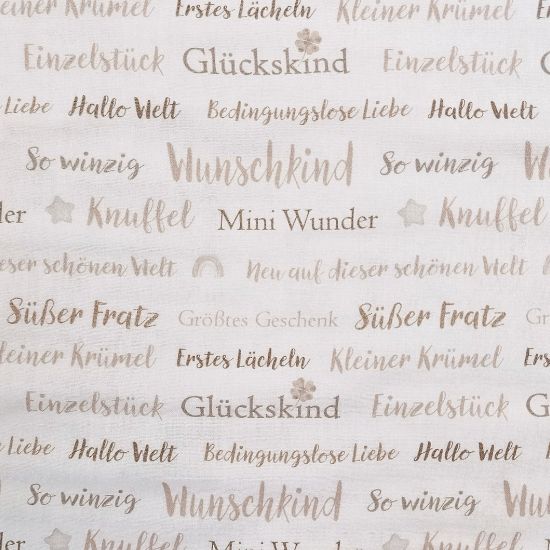 Kleiner Krümel Erstes Lächeln Kleiner Krümel
Einzelstück Glückskind Einzelstück
Liebe Hallo Welt Bedingungslose Liebe Hallo Welt
So winzig Wunschkind So winzig
Knuffel Mini Wunder Knuffel
dieser schönen Welt Neu auf dieser schönen Welt
Süßer Fratz Größtes Geschenk Süßer Fratz
Kleiner Krümel Erstes Lächeln Kleiner Krümel
Einzelstück Glückskind Einzelstück
Liebe Hallo Welt Bedingungslose Liebe Hallo Welt
So winzig Wunschkind So winzig
Knuffel Mini Wunder Knuffel